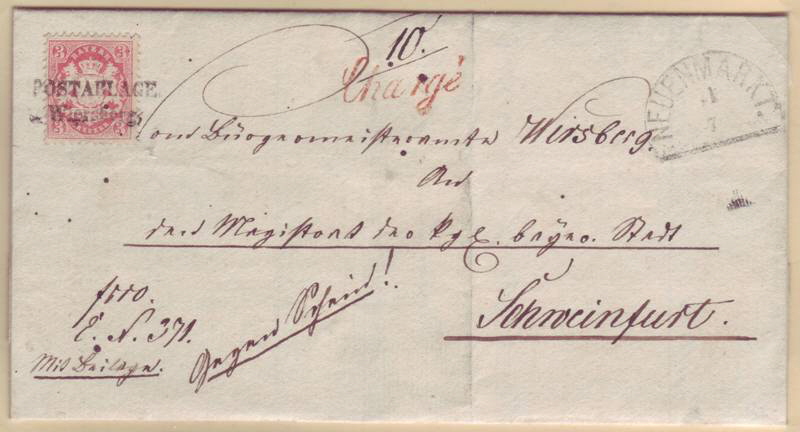 3 BAYERN 3
POSTABLAGE
Wirsberg
3 3
10.
Chargé
NEUENMARKT.
1
7
Vom Bürgermeisteramte Wirsberg.
An
den Magistrat der kgl. bayer. Stadt
Schweinfurt.
frco.
E. N. 371.
Mit Beilage.
Gegen Schein!